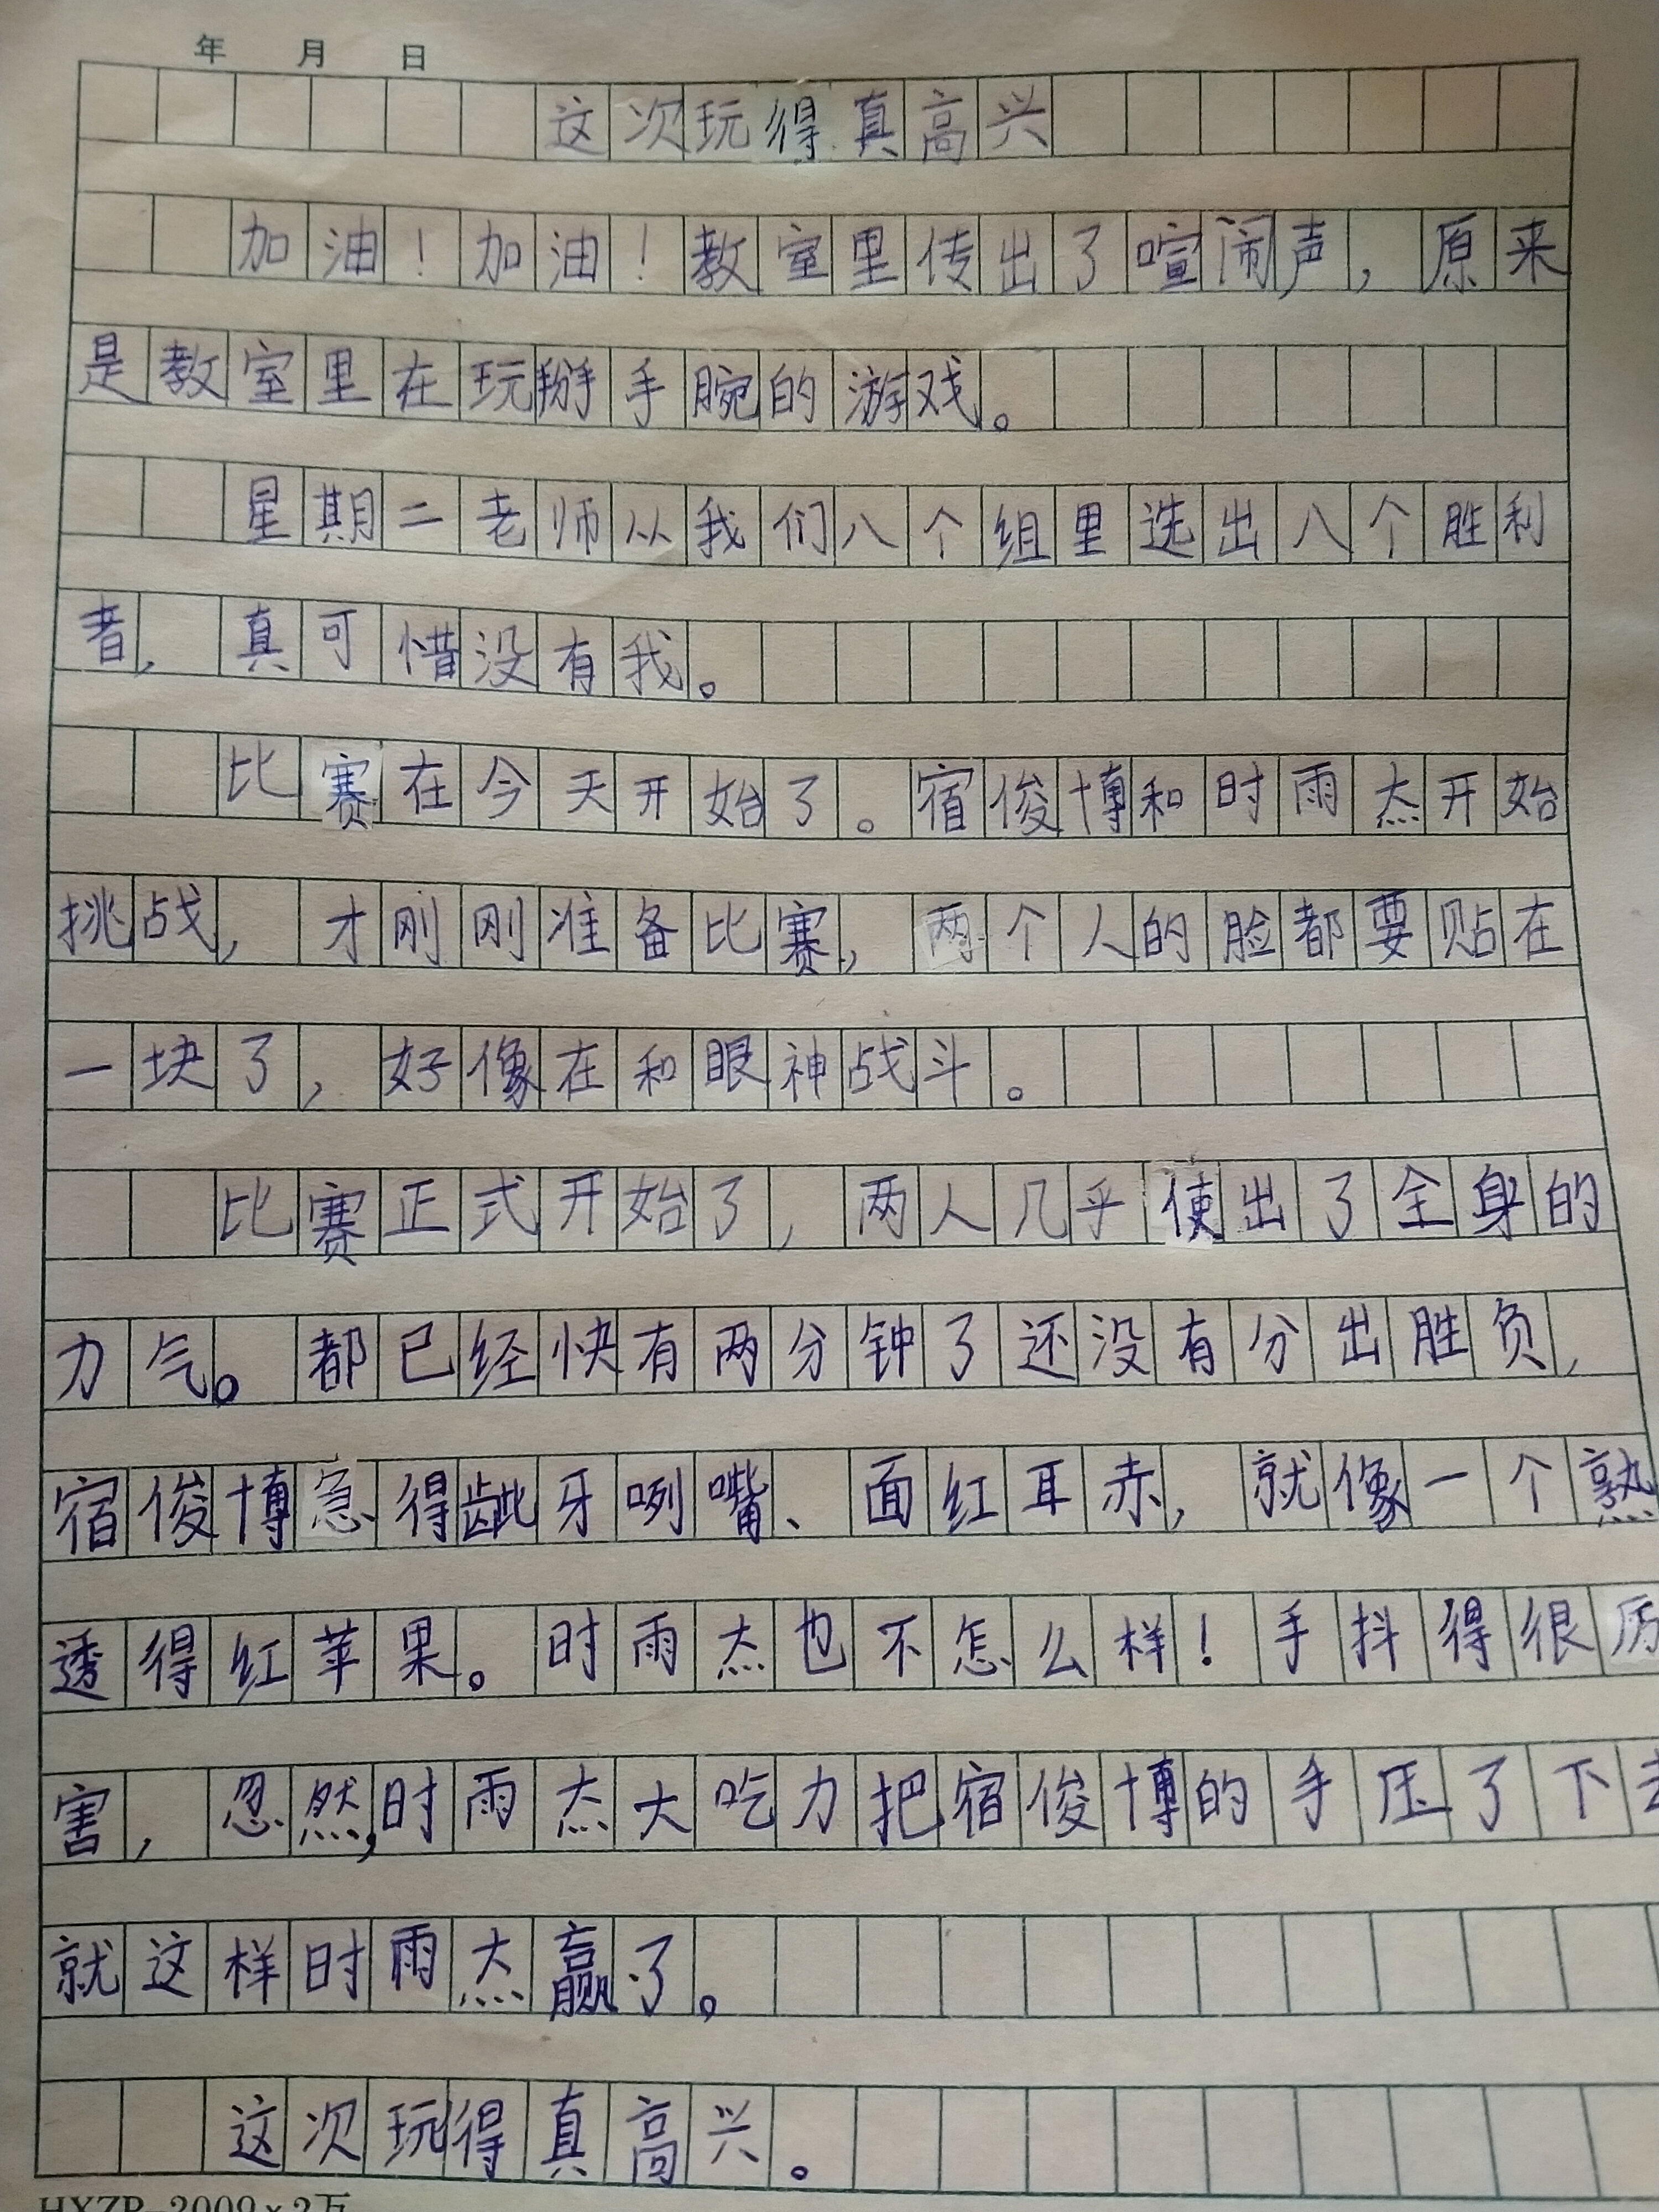 年 月 日
这次玩得真高兴
加油！加油！教室里传出了喧闹声，原来
是教室里在玩掰手腕的游戏。
星期二老师从我们八个组里选出八个胜利
者，真可惜没有我。
比赛在今天开始了。宿俊博和时雨杰开始
挑战，才刚刚准备比赛，两个人的脸都要贴在
一块了，好像在和眼神战斗。
比赛正式开始了，两人几乎使出了全身的
力气。都已经快有两分钟了还没有分出胜负，
宿俊博急得龇牙咧嘴、面红耳赤，就像一个熟
透得红苹果。时雨杰也不怎么样！手抖得很厉
害，忽然，时雨杰大吃力把宿俊博的手压了下去
就这样时雨杰赢了。
这次玩得真高兴。